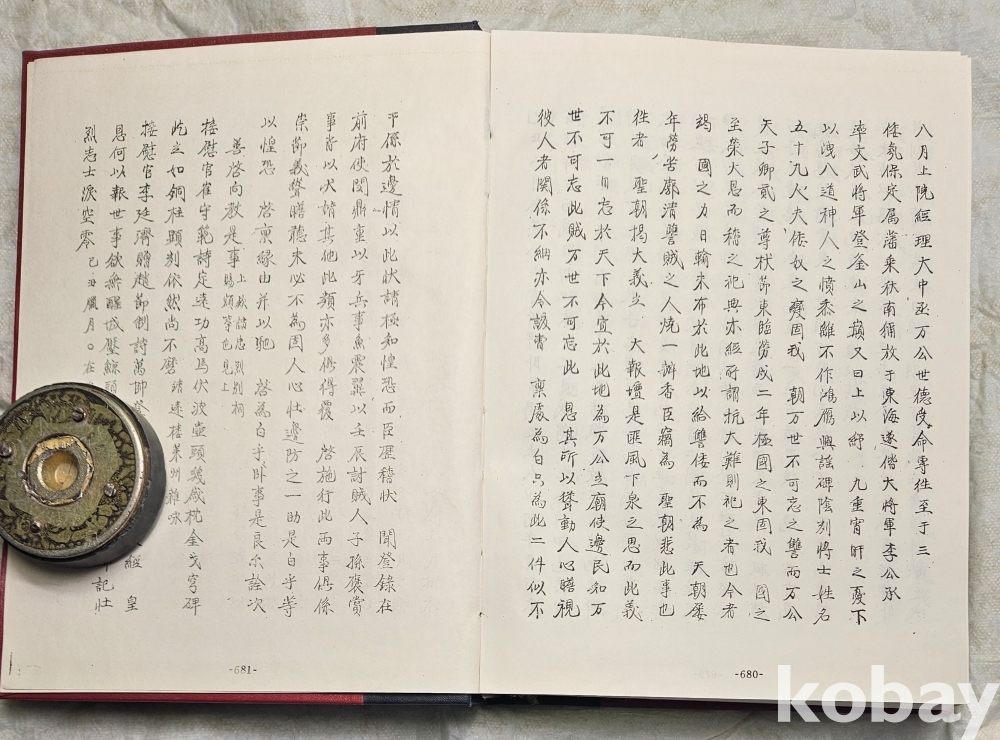 八月上院經理大中丞万公世德受命專徃至于三
倭氛保定属藩乘秋南稱放于東海遂偕大將軍李公承
率文武將軍登釜山之巔又曰上以紓 九重宵旰之憂下
以洩八道神人之憤忝離不作鴻鴈興謡碑陰刻將士姓名
五十九人夫倭奴之變固我 朝万世不可忘之讐而万公
天子卿貳之尊杖節東臨勞戍二年極國之東固我 國之
至榮大恩而稽之祀典亦經所謂抗大難則祀之者也今者
竭 國之力日輸米布於此地以給讐倭而不為 天朝屡
年勞苦廓清讐賊之人燒一瓣香臣竊為 聖朝悲此事也
徃者 聖朝揭大義立 大報壇是匪風下泉之思而此義
不可一日忘於天下今宜於此地為万公立廟使邊民知万
世不可忘此賊万世不可忘此 恩其所以聳動人心瞻視
彼人者関係不細亦令該曹 禀處為白只為此二件似不
干係於邊情以此狀請極知惶恐而臣歷稽狀 聞登錄在
前府使閔鼎重以牙兵事魚震翼以壬辰討賊人子孫褒賞
事皆以狀請其他此類亦多俻得覆 啓施行此兩事俱係
崇節義聳瞻聽未必不為固人心壮邊防之一助是白乎等
以惶恐 啓禀緣由并以馳 啓為白乎卧事是良尒詮次
善啓向教是事 上款請忠烈别祠賜額等也見上
接慰官崔守範詩定遠功高馬伏波壺頭幾廢枕金戈穹碑
屹立如銅柱顕刻依然尚不磨 靖遠楼萊州雜咏
接慰官李廷濟贈趙節制詩萬卽
恳何以報世事欲無醒城壓鯨頭 継 皇
烈志士淚空零 乙丑臘月 在 記壮
-681-
-680-
kobay